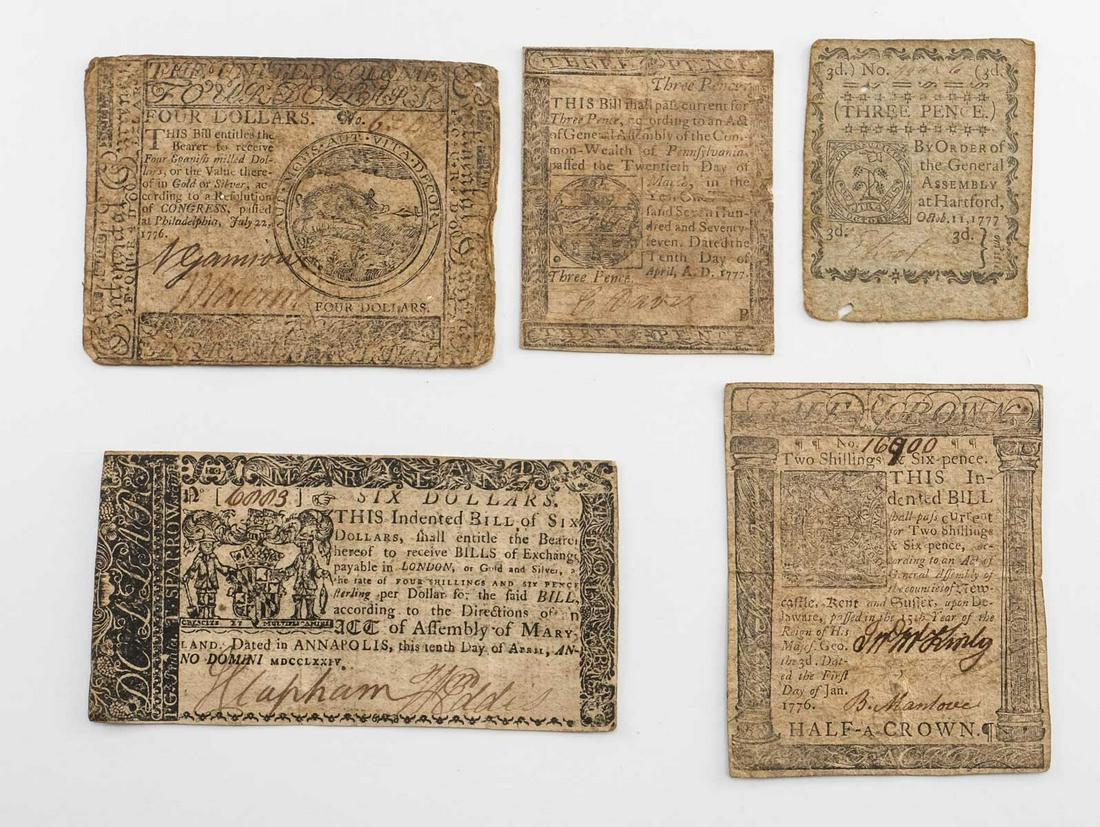 THE UNITED COLONIE
FOUR DOLLARS
FOUR DOLLARS. No.
THIS Bill entitles the
Bearer to receive
Four Spanish milled Dol-
lars, or the Value there-
of in Gold or Silver, ac
cording to a Resolution
of CONGRESS, passed
at Philadelphia, July 22,
1776.
AUT MORS AUT VITA DECORA
FOUR DOLLARS.
Continental Currency
THREE PENCE
Three Pence.
THIS Bill shall pass current for
Three Pence, according to an Act
of General Assembly of the Com-
mon-Wealth of Pennsylvania,
passed the Twentieth Day of
March, in the
Year One
sand Seven Hun-
dred and Seventy-
seven. Dated the
Tenth Day of
April, A. D. 1777.
Three Pence.
B
THREE PENCE
3d.) No. (3d.
(THREE PENCE.)
By ORDER of
the General
ASSEMBLY
at Hartford,
Octob. 11, 1777
3d. 3d.
MARYLAND
DOLLARS
I. SPARROW
No [6003]
SIX DOLLARS.
THIS Indented BILL of SIX
DOLLARS, shall entitle the Bearer
hereof to receive BILLS of Exchange
payable in LONDON, or Gold and Silver, a
the rate of FOUR SHILLINGS AND SIX PENCE
sterling per Dollar for the said BILL,
according to the Directions of n
ACT of Assembly of MARY-
LAND. Dated in ANNAPOLIS, this tenth Day of APRIL, AN-
NO DOMINI MDCCLXXIV.
CRESCITE ET MULTIPLICAMINI
J Clapham Wm Eddis
HALF CROWN
¶¶ No. 16900 ¶¶
Two Shillings & Six-pence.
THIS In-
dented BILL
shall pass current
for Two Shillings
& Six-pence, ac-
cording to an Act of
General Assembly of
the counties of New-
castle, Kent and Sussex, upon De-
laware, passed in the 15th Year of the
Reign of His
Majes. Geo.
the 3d. Dat-
ed the First
Day of Jan.
1776.
Jno McKinly
B. Manlove
HALF-A CROWN.¶